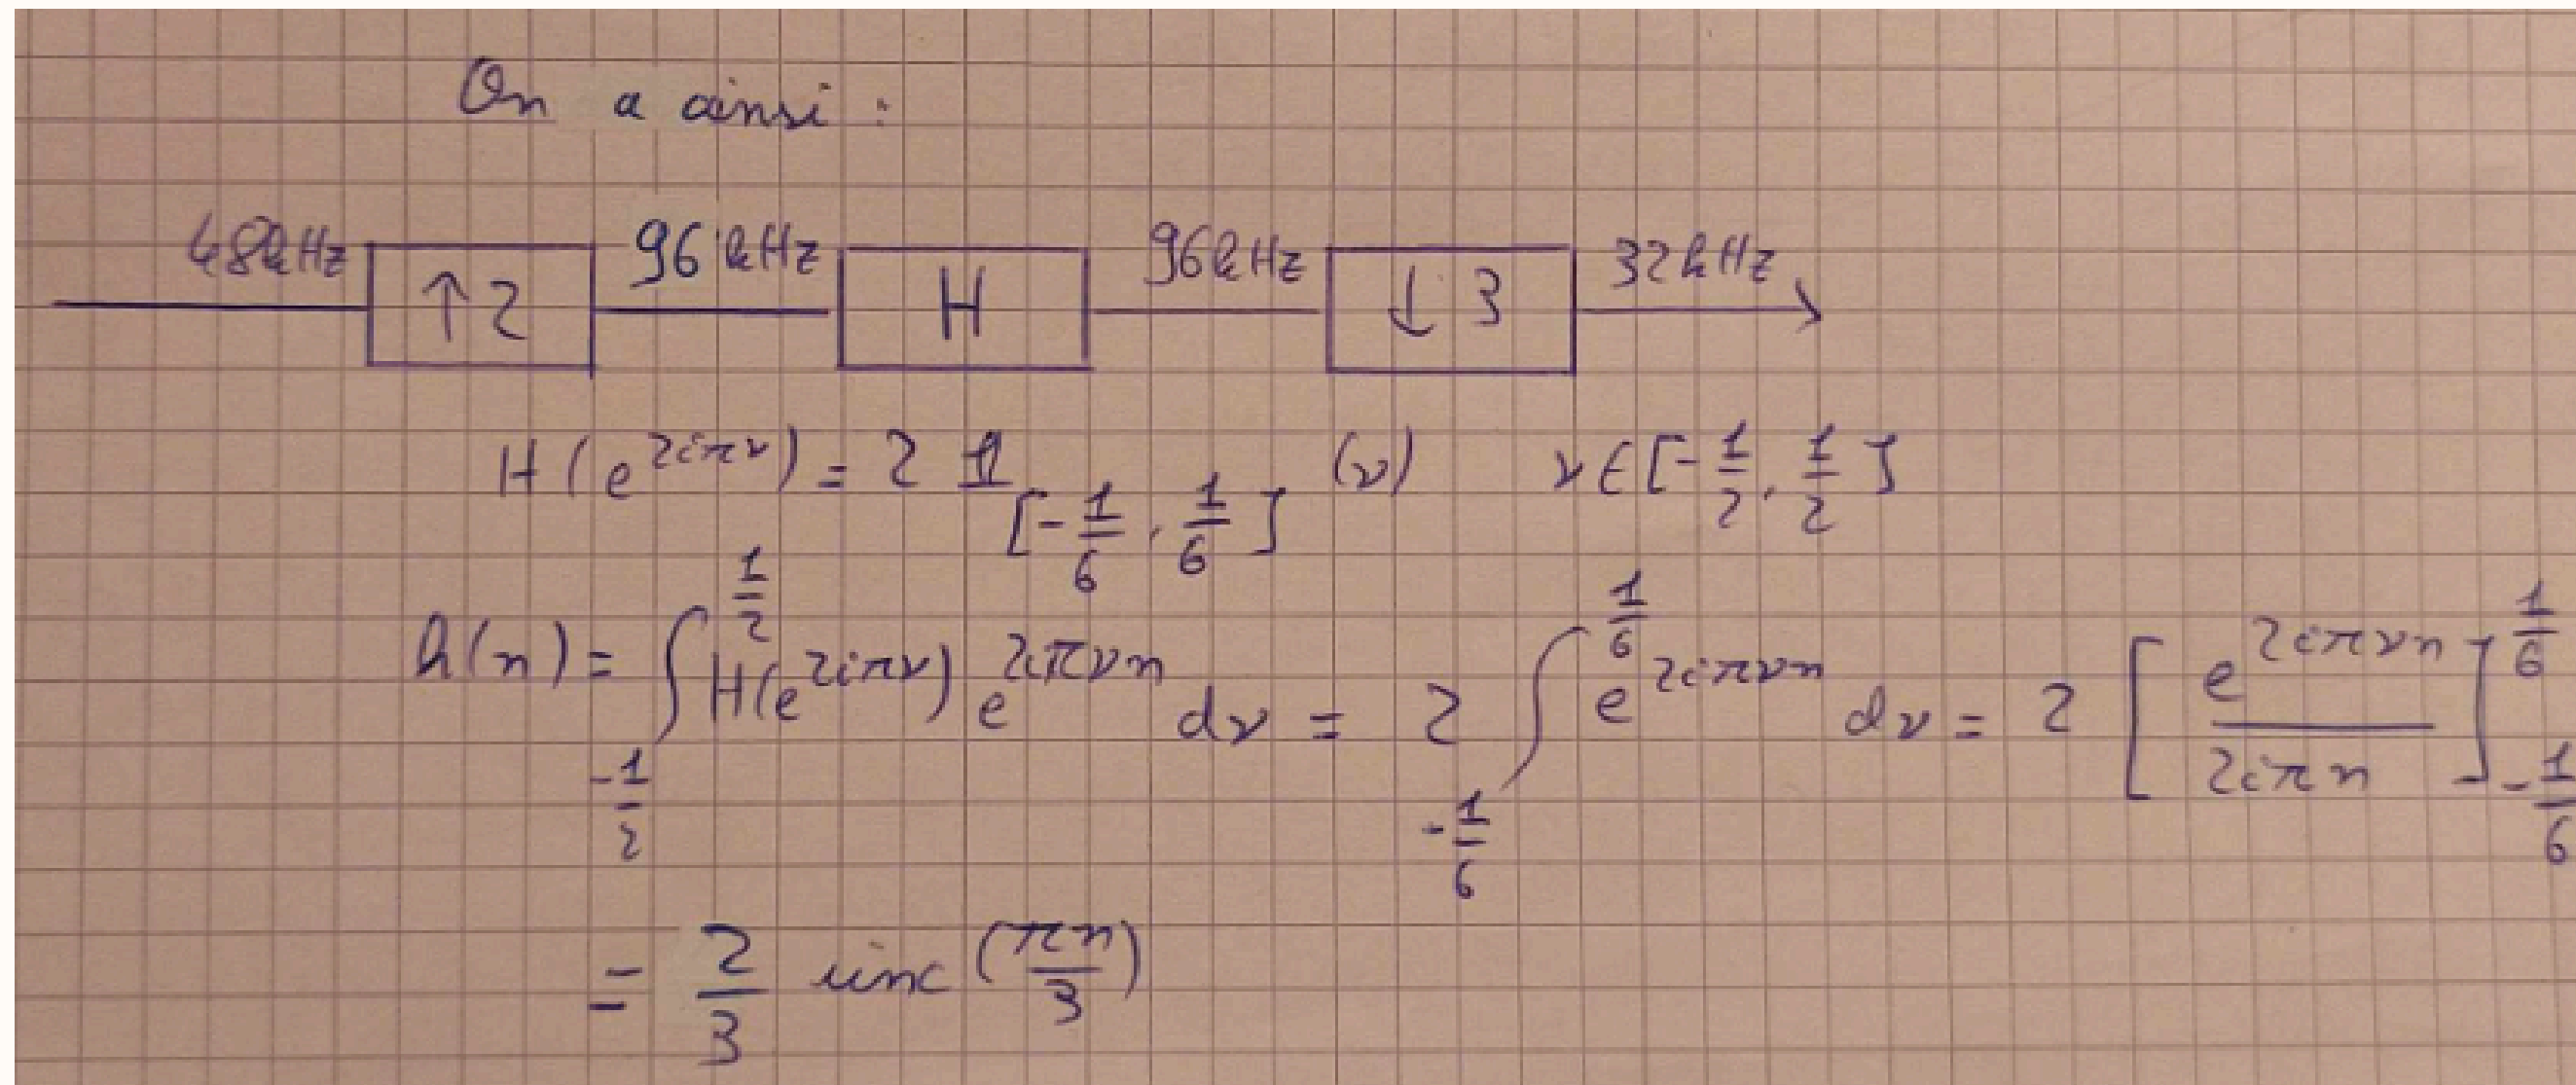 On a ainsi :
48kHz ↑2 96kHz H 96kHz ↓3 32kHz
H(e^{2iπν}) = 2 𝟙_{[-1/6, 1/6]}(ν) ν ∈ [-1/2, 1/2]
h(n) = ∫_{-1/2}^{1/2} H(e^{2iπν}) e^{2iπνn} dν = 2 ∫_{-1/6}^{1/6} e^{2iπνn} dν = 2 [e^{2iπνn} / 2iπn]_{-1/6}^{1/6}
= 2/3 sinc(πn/3)